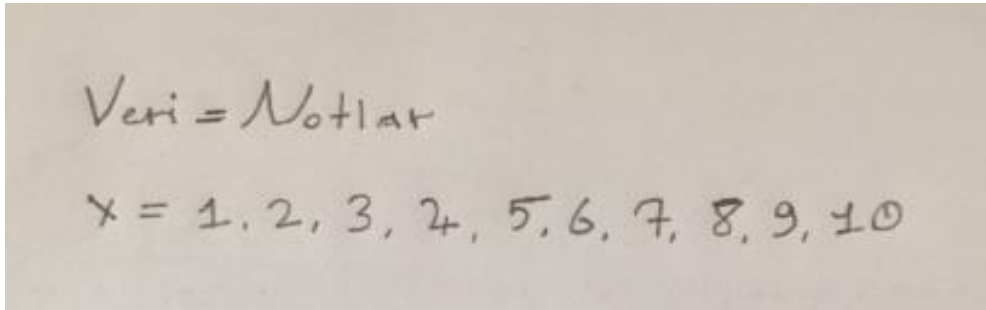 Veri = Notlar
x = 1, 2, 3, 4, 5, 6, 7, 8, 9, 10